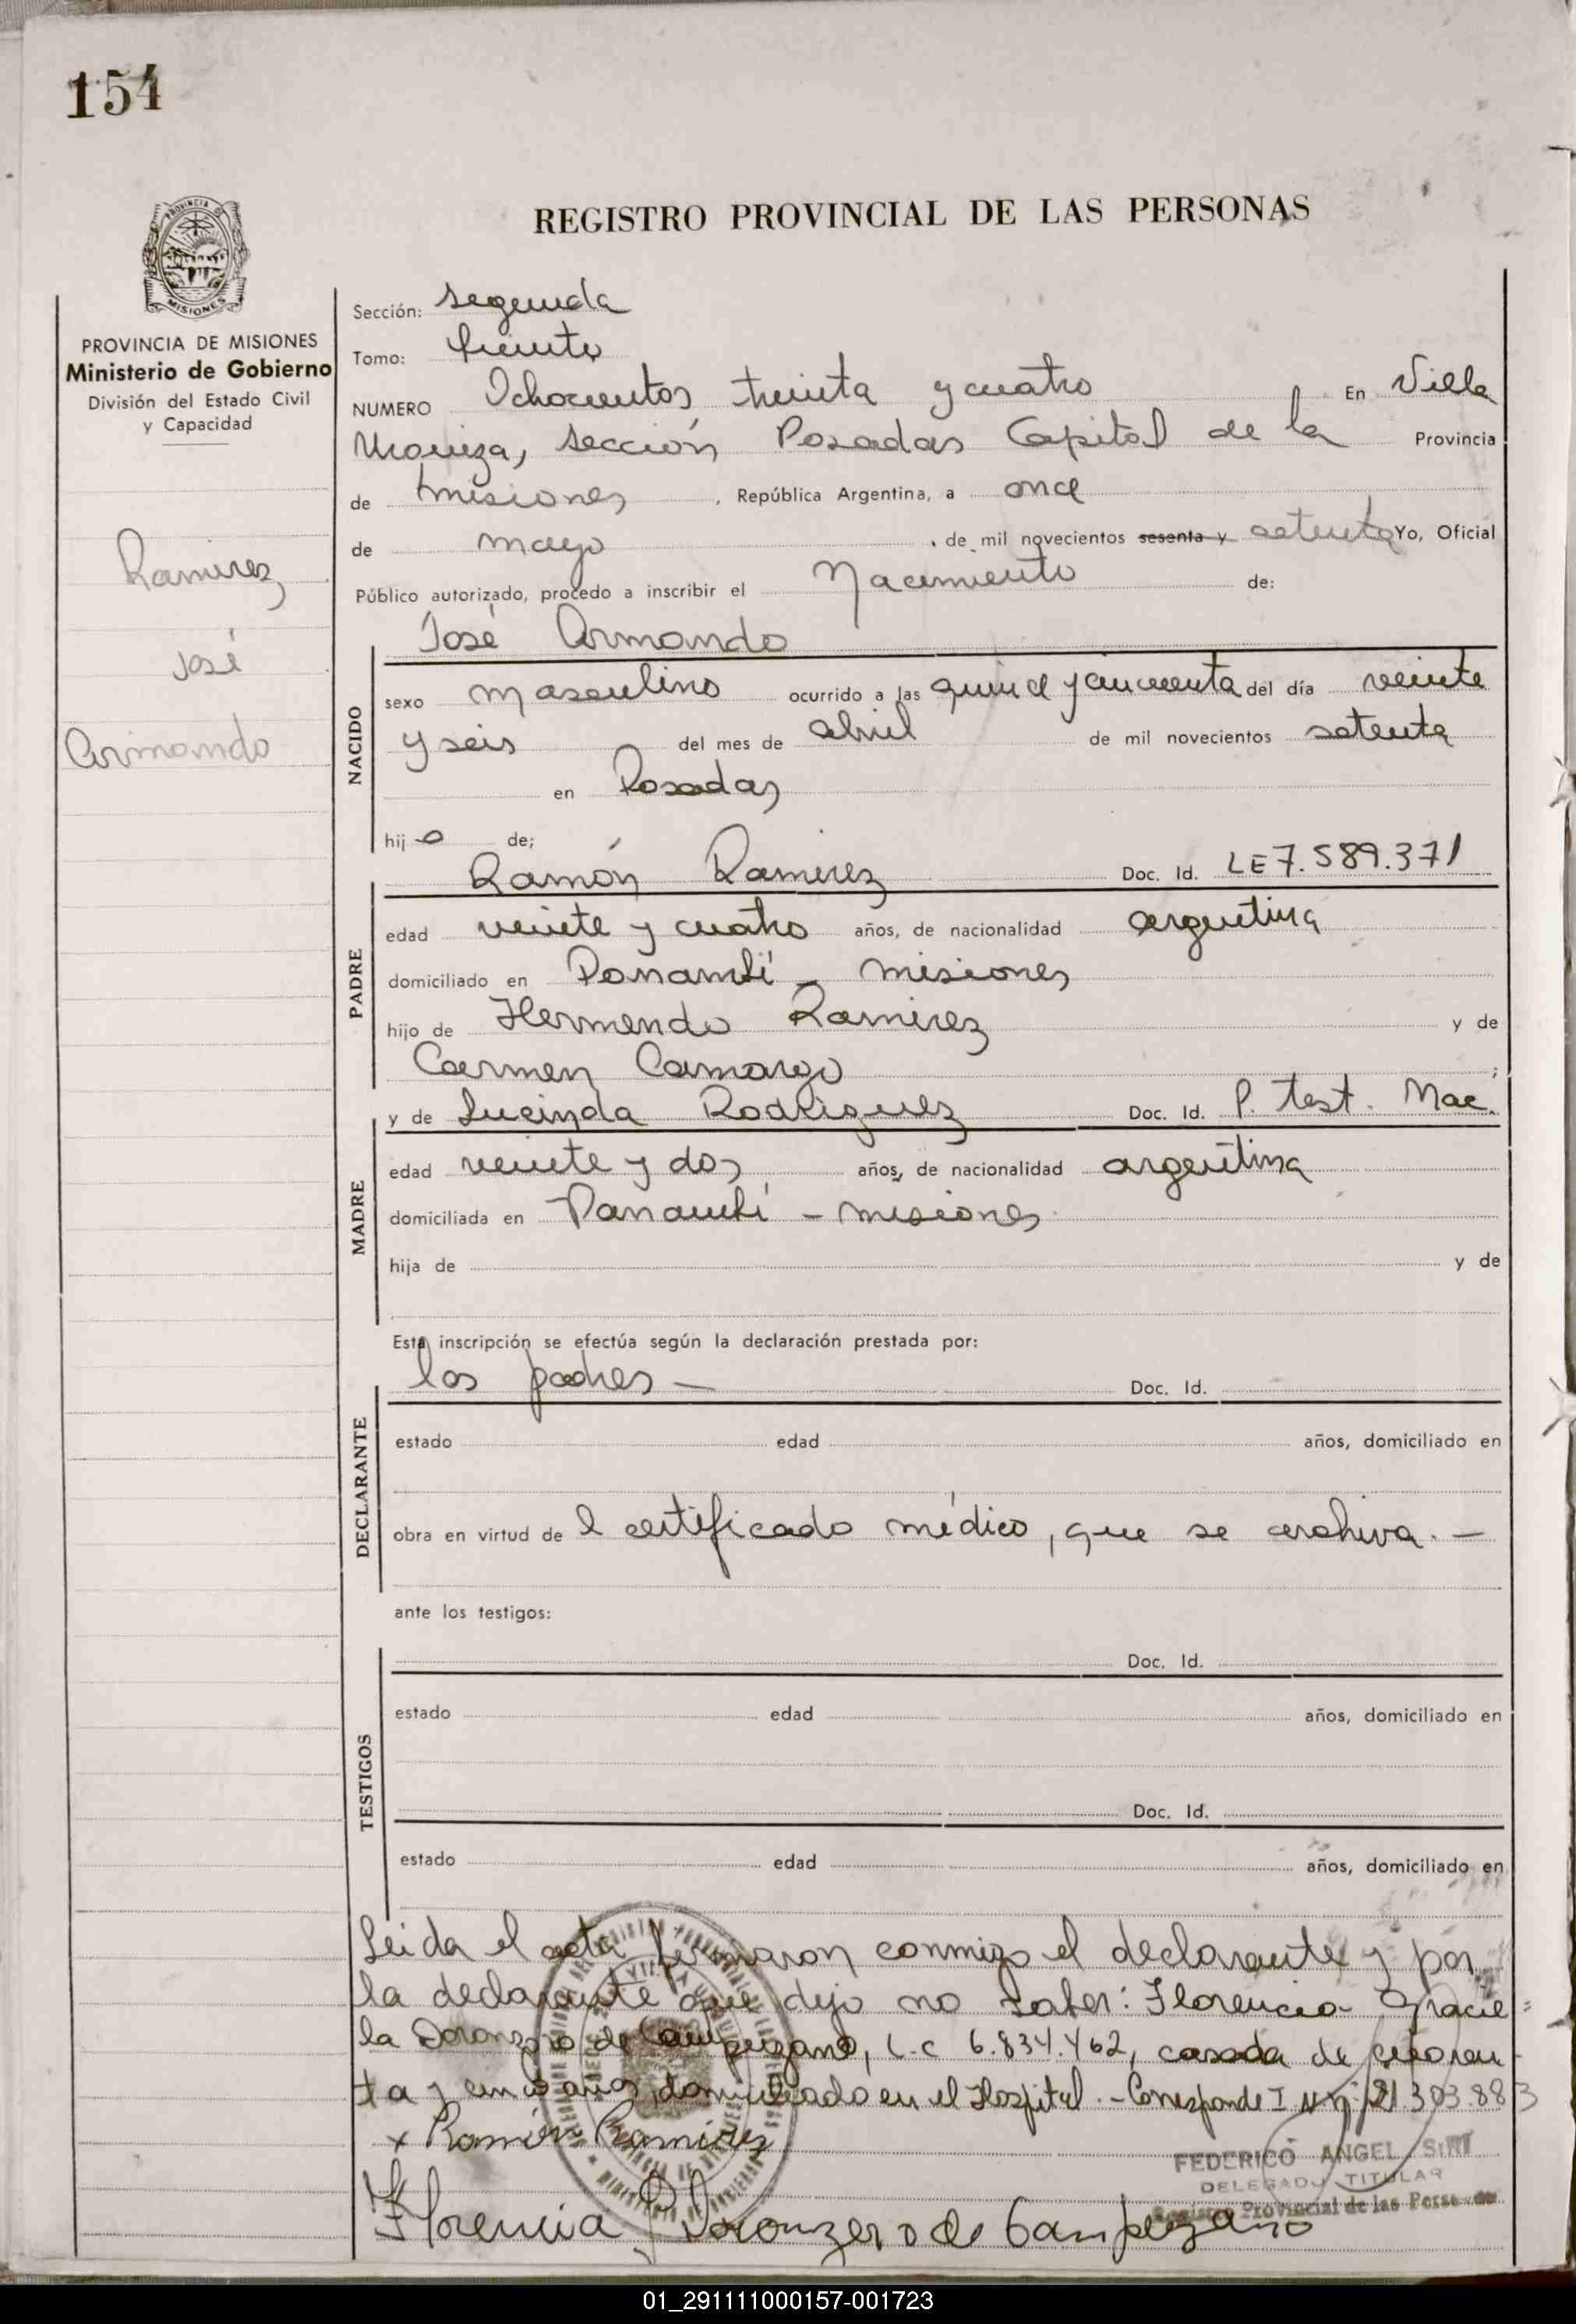 154
PROVINCIA
MISIONES
REGISTRO PROVINCIAL DE LAS PERSONAS
PROVINCIA DE MISIONES
Ministerio de Gobierno
División del Estado Civil
y Capacidad
Ramirez
José
Armando
Sección: segunda
Tomo:
NUMERO Ochocientos treinta y cuatro En Villa
Urquiza, sección Posadas Capital de la Provincia
de misiones, República Argentina, a once
de mayo, de mil novecientos sesenta y setenta Yo, Oficial
Público autorizado, procedo a inscribir el Nacimiento de:
José Armando
NACIDO
sexo masculino ocurrido a las quince y cincuenta del día veinte
y seis del mes de abril de mil novecientos setenta
en Posadas
hijo de;
Ramón Ramirez Doc. Id. LE 7.589.371
PADRE
edad veinte y cuatro años, de nacionalidad argentina
domiciliado en Panambí - misiones
hijo de Hermendo Ramirez y de
Carmen Camargo;
y de Lucinda Rodriguez Doc. Id. P. test. Nac.
MADRE
edad veinte y dos años, de nacionalidad argentina
domiciliada en Panambí - misiones
hija de y de
Esta inscripción se efectúa según la declaración prestada por:
los padres - Doc. Id.
DECLARANTE
estado edad años, domiciliado en
obra en virtud de l certificado médico, que se archiva. -
ante los testigos:
Doc. Id.
TESTIGOS
estado edad años, domiciliado en
Doc. Id.
estado edad años, domiciliado en
Leida el acta firmaron conmigo el declarante y por
la declarante que dijo no saber: Florencia Gracie=
la Doronzoro de Campezano, L.C 6.834.462, casada de cuaren
ta y cinco años domiciliado en el Hospital. - Corresponde I Nº 21.303.883
x Ramón Ramirez
FEDERICO ANGEL
DELEGADO TITULAR
Registro Provincial de las Personas
Florencia Doronzoro de Campezano
01_291111000157-001723